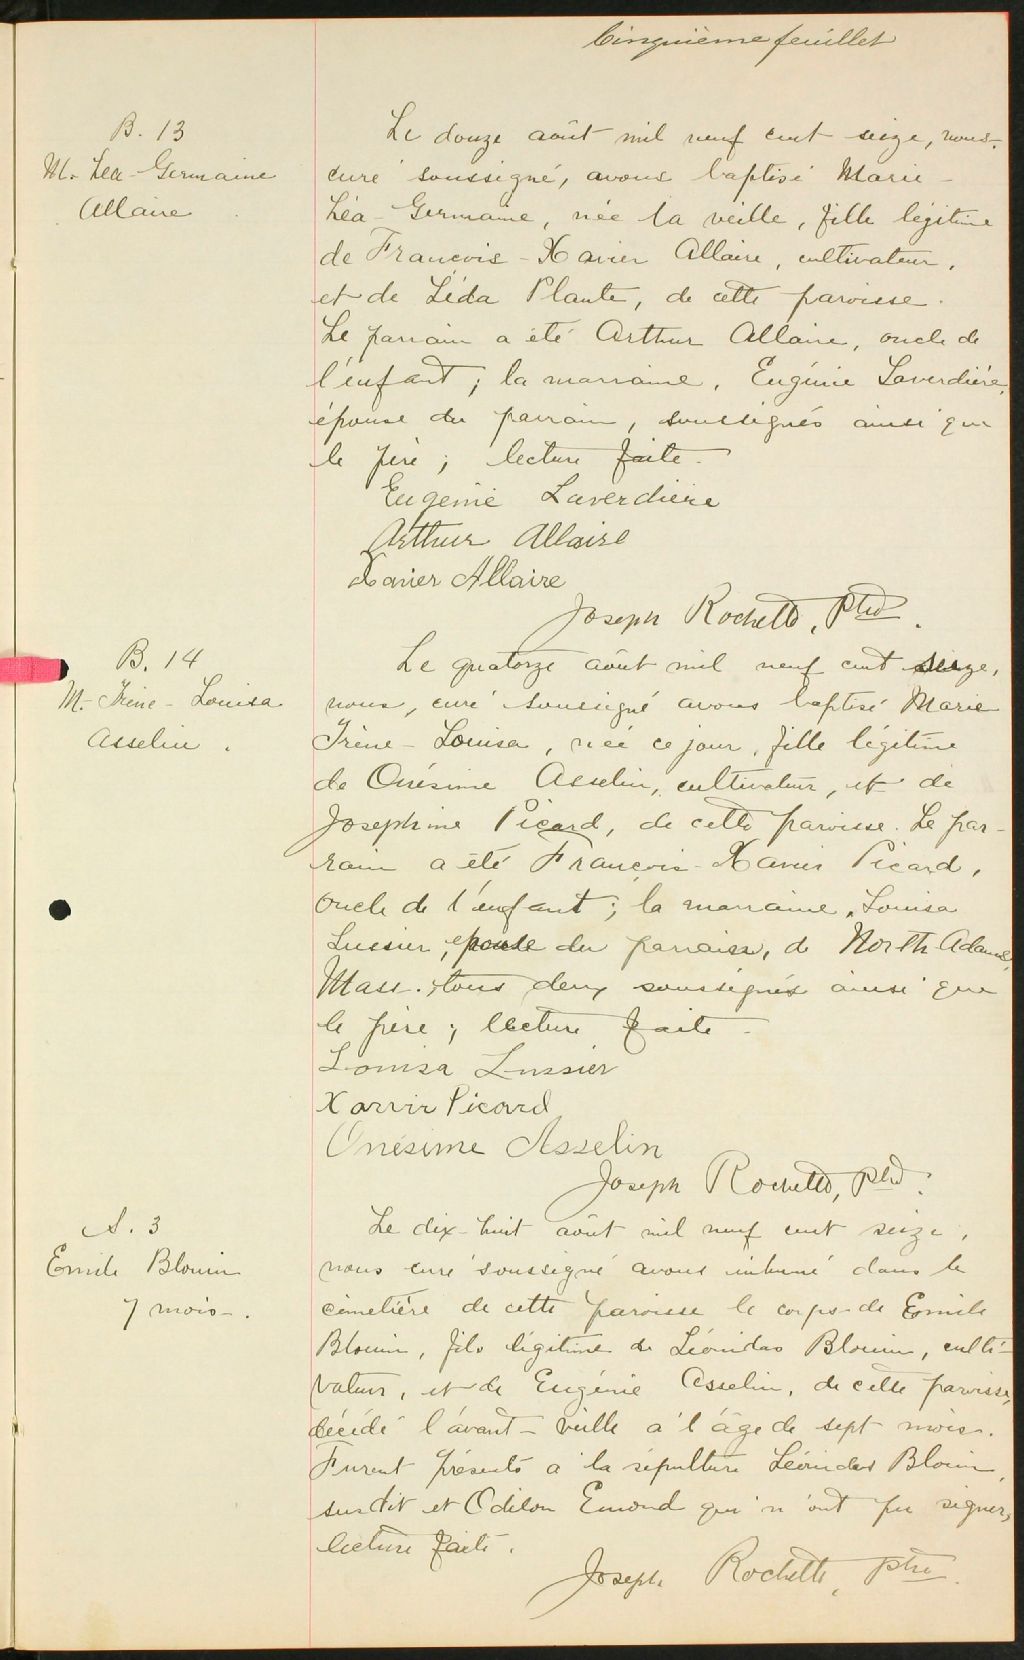 Cinquième feuillet
B. 13
M.- Léa-Germaine
Allaire
Le douze août mil neuf cent seize, nous,
curé soussigné, avons baptisé Marie-
Léa-Germaine, née la veille, fille légitime
de François-Xavier Allaire, cultivateur,
et de Léda Plante, de cette paroisse.
Le parrain a été Arthur Allaire, oncle de
l'enfant ; la marraine, Eugénie Laverdière,
épouse du parrain, soussignés ainsi que
le père ; lecture faite.
Eugénie Laverdière
Arthur Allaire
Xavier Allaire
Joseph Rochette, ptre.
B. 14
M.- Irène-Louisa
Asselin.
Le quatorze août mil neuf cent seize,
nous, curé soussigné avons baptisé Marie
Irène-Louisa, née ce jour, fille légitime
de Onésime Asselin, cultivateur, et de
Josephine Picard, de cette paroisse. Le par-
rain a été François-Xavier Picard,
oncle de l'enfant ; la marraine, Louisa
Lussier, épouse du parrain, de North Adams,
Mass. ; tous deux soussignés ainsi que
le père ; lecture faite.
Louisa Lussier
Xavier Picard
Onésime Asselin
Joseph Rochette, ptre.
S. 3
Emile Blouin
7 mois-.
Le dix-huit août mil neuf cent seize,
nous curé soussigné avons inhumé dans le
cimetière de cette paroisse le corps de Emile
Blouin, fils légitime de Léonidas Blouin, culti-
vateur, et de Eugénie Asselin, de cette paroisse,
décédé l'avant-veille à l'âge de sept mois.
Furent présents à la sépulture Léonidas Blouin,
susdit et Odilon Emond qui n'ont pu signer,
lecture faite.
Joseph Rochette, ptre.